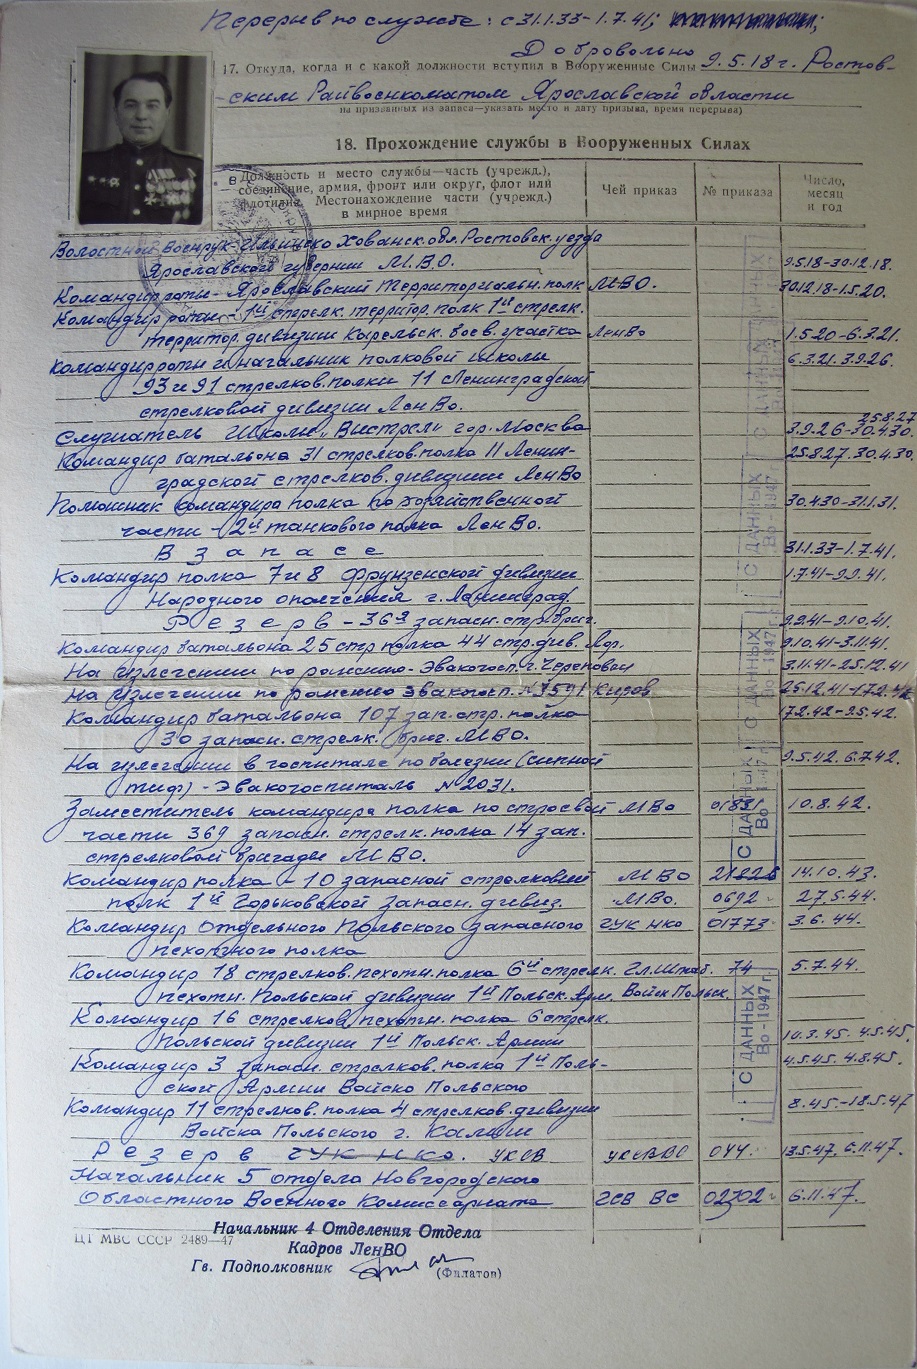 Перерыв по службе: с 31.1.33-1.7.41;
Добровольно
17. Откуда, когда и с какой должности вступил в Вооруженные Силы 9.5.18 г. Ростов-
-ским Райвоенкоматом Ярославской области
на призванных из запаса—указать место и дату призыва, время перерыва)
18. Прохождение службы в Вооруженных Силах
Должность и место службы—часть (учрежд.), соединение, армия, фронт или округ, флот или флотилия. Местонахождение части (учрежд.) в мирное время
Чей приказ
№ приказа
Число, месяц и год
Волостной Военрук- Ильинско Хованск. обл. Ростовск. уезда
Ярославской губернии М.В.О. 9.5.18-30.12.18.
Командир роты- Ярославский Территориальн. полк МВО. 30.12.18-1.5.20.
Командир роты - 1й стрелк. территор. полк 1й стрелк.
территор. дивизии Карельск. боев. участка ЛенВо 1.5.20-6.3.21.
Командир роты и начальник полковой школы 6.3.21. 3.9.26.
93 и 91 стрелков. полки 11 Ленинградской
стрелковой дивизии ЛенВо. 25.8.27
Слушатель Школы „Выстрел" гор. Москва 3.9.26-30.4.30.
Командир батальона 31 стрелков. полка 11 Ленин- 25.8.27. 30.4.30.
градской стрелков. дивизии ЛенВо
Помошник командира полка по хозяйственной 30.4.30-31.1.31.
части - 2й танкового полка ЛенВо.
В запасе 31.1.33-1.7.41.
Командир полка 7 и 8 Фрунзенской дивизии 1.7.41-9.9.41.
Народного ополчения г. Ленинград
Резерв - 36я запасн. стр. бриг. 9.9.41-9.10.41.
Командир батальона 25 стр полка 44 стр. див. 9.10.41-3.11.41.
На излечении по ранению- Эвакогосп. г. Череповец 3.11.41-25.12.41
На излечении по ранению Эвакогосп. №3591 Киров 25.12.41-17.2.42
Командир батальона 107 зап. стр. полка 17.2.42-9.5.42.
30 запасн. стрелк. бриг. МВО.
На излечении в госпитале по болезни (сыпной 9.5.42. 6.7.42.
тиф) - Эвакогоспиталь №2031.
Заместитель командира полка по строевой МВО 01831 10.8.42.
части 369 запасн. стрелк. полка 14 зап.
стрелковой бригады МВО.
Командир полка - 10 запасной стрелковый МВО 14.10.43.
полк 1й Горьковской Запасн. дивиз. МВО. 0692 27.5.44.
Командир Отдельного Польского Запасного ГУК НКО 01773 3.6.44.
пехотного полка
Командир 18 стрелков. пехотн. полка 6й стрелк. Гл. Штаб. 74 5.7.44.
пехотн. Польской дивизии 1й Польск. Арм. Войск Польск.
Командир 16 стрелков. пехотн. полка 6 стрелк.
Польской дивизии 1й Польск. Армии 10.3.45. 4.5.45.
Командир 3 запасн. стрелков. полка 1й Поль- 4.5.45. 4.8.45.
ской Армии Войско Польского
Командир 11 стрелков. полка 4 стрелков. дивизии 8.45.-18.5.47
Войска Польского г. Калиш
Резерв ГУК НКО. УКСВ УКСВВС 044. 13.5.47. 6.11.47.
Начальник 5 отдела Новгородского
Областного Военного Комиссариата ГСВ ВС 02702 6.11.47.
С ДАННЫХ
Во -1947 г.
С ДАННЫХ
Во -1947 г.
С ДАННЫХ
Во -1947 г.
С ДАННЫХ
Во -1947 г.
Начальник 4 Отделения Отдела
ЦТ МВС СССР 2489—47
Кадров ЛенВО
Гв. Подполковник (Филатов)